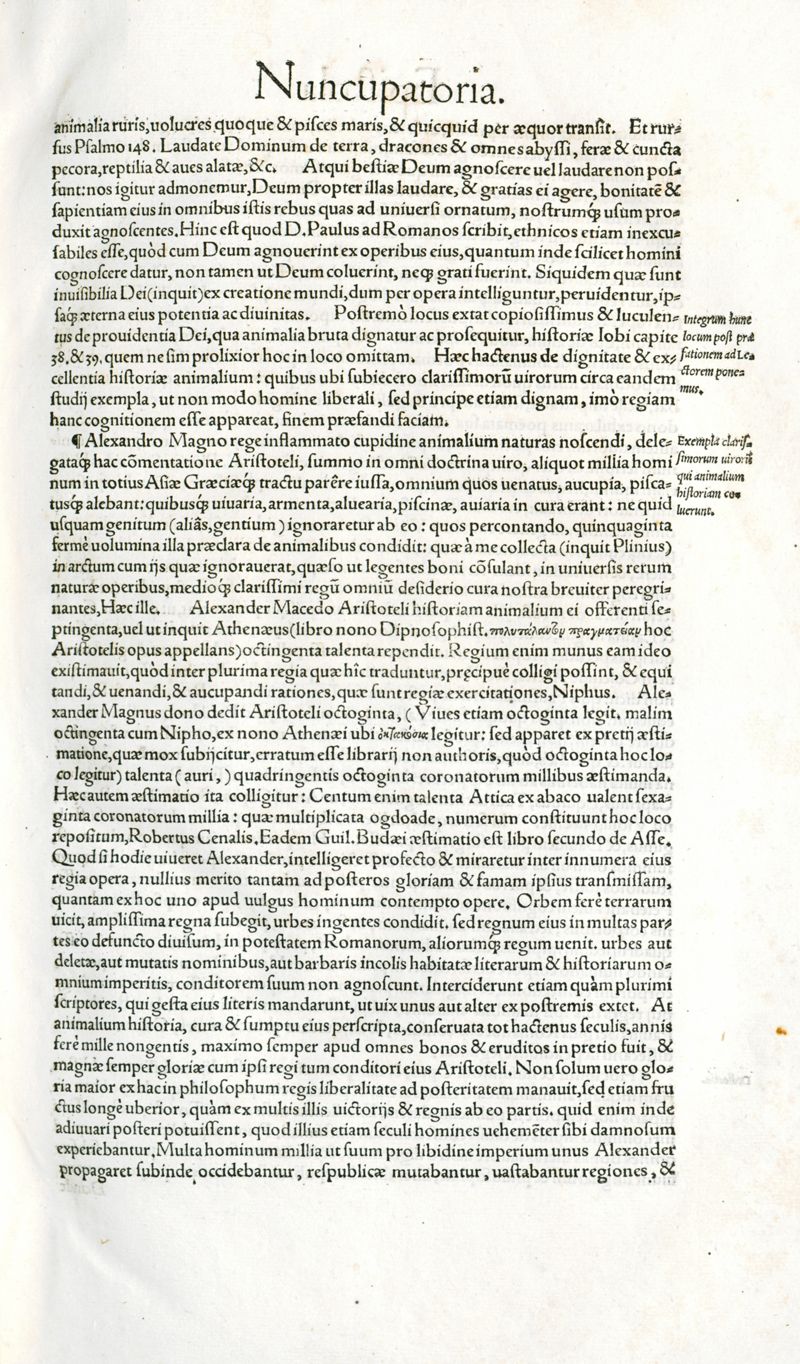 Nuncupatoria.
animalia ruris, uolucres quoque & pisces maris, & quicquid per æquor transit. Et rur-
sus Psalmo 148. Laudate Dominum de terra, dracones & omnes abyssi, feræ & cuncta
pecora, reptilia & aues alatæ, &c. Atqui bestiæ Deum agnoscere uel laudare non pos-
sunt: nos igitur admonemur, Deum propter illas laudare, & gratias ei agere, bonitatē &
sapientiam eius in omnibus istis rebus quas ad uniuersi ornatum, nostrumq́; usum pro-
duxit agnoscentes. Hinc est quod D. Paulus ad Romanos scribit, ethnicos etiam inexcu-
sabiles esse, quòd cum Deum agnouerint ex operibus eius, quantum inde scilicet homini
cognoscere datur, non tamen ut Deum coluerint, neq; grati fuerint. Siquidem quæ sunt
inuisibilia Dei (inquit) ex creatione mundi, dum per opera intelliguntur, peruidentur, ip-
saq́; æterna eius potentia ac diuinitas. Postremò locus extat copiosissimus & luculen-
tus de prouidentia Dei, qua animalia bruta dignatur ac prosequitur, historiæ Iobi capite
38. & 39. quem ne sim prolixior hoc in loco omittam. Hæc hactenus de dignitate & ex-
cellentia historiæ animalium: quibus ubi subiecero clarissimorū uirorum circa eandem
studij exempla, ut non modo homine liberali, sed principe etiam dignam, imò regiam
hanc cognitionem esse appareat, finem præfandi faciam.
Integrum hunc
locum post præ
fationem ad Le-
ctorem pone-
mus.
¶ Alexandro Magno rege inflammato cupidine animalium naturas noscendi, dele-
gataq́; hac cōmentatione Aristoteli, summo in omni doctrina uiro, aliquot millia homi
num in totius Asiæ Græciæq́; tractu parêre iussa, omnium quos uenatus, aucupia, pisca-
tusq́; alebant: quibusq́; uiuaria, armenta, aluearia, piscinæ, auiaria in cura erant: ne quid
usquam genitum (aliâs, gentium) ignoraretur ab eo: quos percontando, quinquaginta
fermè uolumina illa præclara de animalibus condidit: quæ à me collecta (inquit Plinius)
in arctum cum ijs quæ ignorauerat, quæso ut legentes boni cōsulant, in uniuersis rerum
naturæ operibus, medioq́; clarissimi regū omniū desiderio cura nostra breuiter peregri-
nantes, Hæc ille. Alexander Macedo Aristoteli historiam animalium ei offerenti se-
ptingenta, uel ut inquit Athenæus (libro nono Dipnosophist. πολυτάλαντον πραγματείαν hoc
Aristotelis opus appellans) octingenta talenta rependit. Regium enim munus eam ideo
existimauit, quòd inter plurima regia quæ hîc traduntur, pręcipuè colligi possint, & equi
tandi, & uenandi, & aucupandi rationes, quæ sunt regiæ exercitationes, Niphus. Ale-
xander Magnus dono dedit Aristoteli octoginta, (Viues etiam octoginta legit. malim
octingenta cum Nipho, ex nono Athenæi ubi ὀκτακόσια legitur: sed apparet ex pretij æsti-
matione, quæ mox subijcitur, erratum esse librarij non authoris, quòd octoginta hoc lo-
co legitur) talenta (auri,) quadringentis octoginta coronatorum millibus æstimanda.
Hæc autem æstimatio ita colligitur: Centum enim talenta Attica ex abaco ualent sexa-
ginta coronatorum millia: quæ multiplicata ogdoade, numerum constituunt hoc loco
repositum, Robertus Cenalis. Eadem Guil. Budæi æstimatio est libro secundo de Asse.
Quod si hodie uiueret Alexander, intelligeret profecto & miraretur inter innumera eius
regia opera, nullius merito tantam ad posteros gloriam & famam ipsius transmissam,
quantam ex hoc uno apud uulgus hominum contempto opere. Orbem ferè terrarum
uicit, amplissima regna subegit, urbes ingentes condidit. sed regnum eius in multas par-
tes eo defuncto diuisum, in potestatem Romanorum, aliorumq́; regum uenit. urbes aut
deletæ, aut mutatis nominibus, aut barbaris incolis habitatæ literarum & historiarum o-
mnium imperitis, conditorem suum non agnoscunt. Interciderunt etiam quàm plurimi
scriptores, qui gesta eius literis mandarunt, ut uix unus aut alter ex postremis extet. At
animalium historia, cura & sumptu eius perscripta, conseruata tot hactenus seculis, annis
ferè mille nongentis, maximo semper apud omnes bonos & eruditos in pretio fuit, &
magnæ semper gloriæ cum ipsi regi tum conditori eius Aristoteli. Non solum uero glo-
ria maior ex hac in philosophum regis liberalitate ad posteritatem manauit, sed etiam fru
ctus longè uberior, quàm ex multis illis uictorijs & regnis ab eo partis. quid enim inde
adiuuari posteri potuissent, quod illius etiam seculi homines uehemēter sibi damnosum
experiebantur. Multa hominum millia ut suum pro libidine imperium unus Alexander
propagaret subinde occidebantur, respublicæ mutabantur, uastabantur regiones, &
Exempla claris-
simorum uirorū
qui animalium
historiam co-
luerunt.